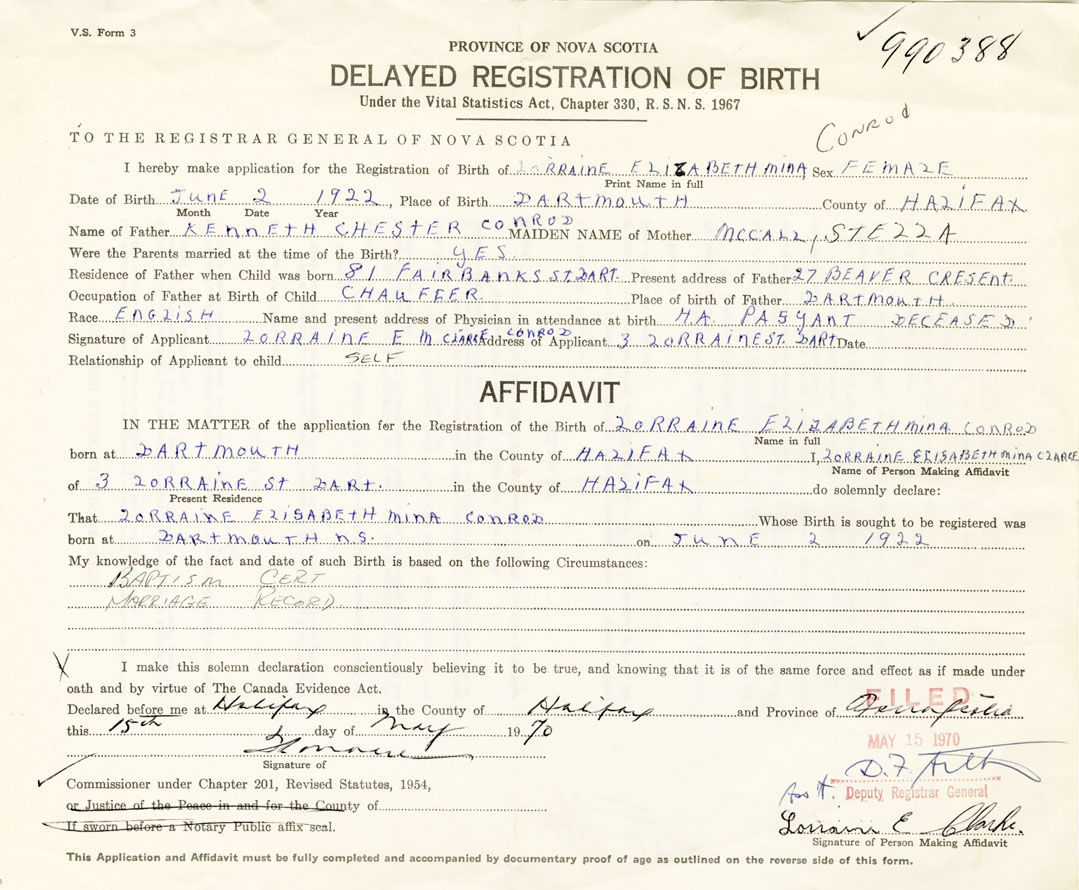 V.S. Form 3
990388
PROVINCE OF NOVA SCOTIA
DELAYED REGISTRATION OF BIRTH
Under the Vital Statistics Act, Chapter 330, R. S. N. S. 1967
TO THE REGISTRAR GENERAL OF NOVA SCOTIA
CONROD
I hereby make application for the Registration of Birth of LORRAINE ELIZABETH MINA Sex FEMALE
Print Name in full
Date of Birth JUNE 2 1922, Place of Birth DARTMOUTH County of HALIFAX
Month Date Year
Name of Father KENNETH CHESTER CONROD MAIDEN NAME of Mother MCCALL, STELLA
Were the Parents married at the time of the Birth? YES.
Residence of Father when Child was born 81 FAIRBANKS ST. DART. Present address of Father 27 BEAVER CRESENT.
Occupation of Father at Birth of Child CHAUFFER. Place of birth of Father DARTMOUTH
Race ENGLISH Name and present address of Physician in attendance at birth H.A. PAYZANT DECEASED
Signature of Applicant LORRAINE E M CLARKE CONROD Address of Applicant 3 LORRAINE ST. DART Date
Relationship of Applicant to child SELF
AFFIDAVIT
IN THE MATTER of the application for the Registration of the Birth of LORRAINE ELIZABETH MINA CONROD
Name in full
born at DARTMOUTH in the County of HALIFAX I, LORRAINE ELISABETH MINA CLARKE
Name of Person Making Affidavit
of 3 LORRAINE ST DART. in the County of HALIFAX do solemnly declare:
Present Residence
That LORRAINE ELISABETH MINA CONROD Whose Birth is sought to be registered was
born at DARTMOUTH N.S. on JUNE 2 1922
My knowledge of the fact and date of such Birth is based on the following Circumstances:
BAPTISM CERT
MARRIAGE RECORD
X I make this solemn declaration conscientiously believing it to be true, and knowing that it is of the same force and effect as if made under
oath and by virtue of The Canada Evidence Act.
FILED
Declared before me at Halifax in the County of Halifax and Province of Nova Scotia
this 15th day of May 1970
MAY 15 1970
Signature of
Commissioner under Chapter 201, Revised Statutes, 1954,
D.F.
Ass't. Deputy Registrar General
or Justice of the Peace in and for the County of
If sworn before a Notary Public affix seal.
Lorraine E Clarke.
Signature of Person Making Affidavit
This Application and Affidavit must be fully completed and accompanied by documentary proof of age as outlined on the reverse side of this form.